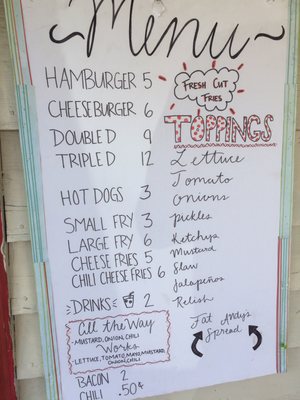 Menu
HAMBURGER 5
CHEESEBURGER 6
DOUBLE D 9
TRIPLE D 12
HOT DOGS 3
SMALL FRY 3
LARGE FRY 6
CHEESE FRIES 5
CHILI CHEESE FRIES 6
DRINKS 2
All the Way
-MUSTARD, ONION, CHILI
Works
-LETTUCE, TOMATO, MAYO, MUSTARD,
ONION, CHILI
BACON 2
CHILI .50¢
FRESH CUT
FRIES
TOPPINGS
Lettuce
Tomato
onions
pickles
Ketchup
Mustard
Slaw
Jalapeños
Relish
Fat Andy's
Spread